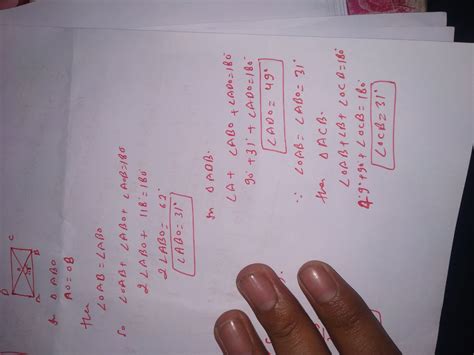 D C
A B
In △ ABO
AO = OB
then
∠OAB = ∠ABO
So ∠OAB + ∠ABO + ∠AOB = 180
2∠ABO + 118 = 180
2∠ABO = 62°
∠ABO = 31°
In △ADB.
∠A + ∠ABO + ∠ADO = 180°
90° + 31° + ∠ADO = 180°
∠ADO = 49°
∵ ∠OAB = ∠ABO = 31°
then △ACB.
∠OAB + ∠B + ∠OCB = 180°
49° + 90° + ∠OCB = 180°
∠OCB = 31°